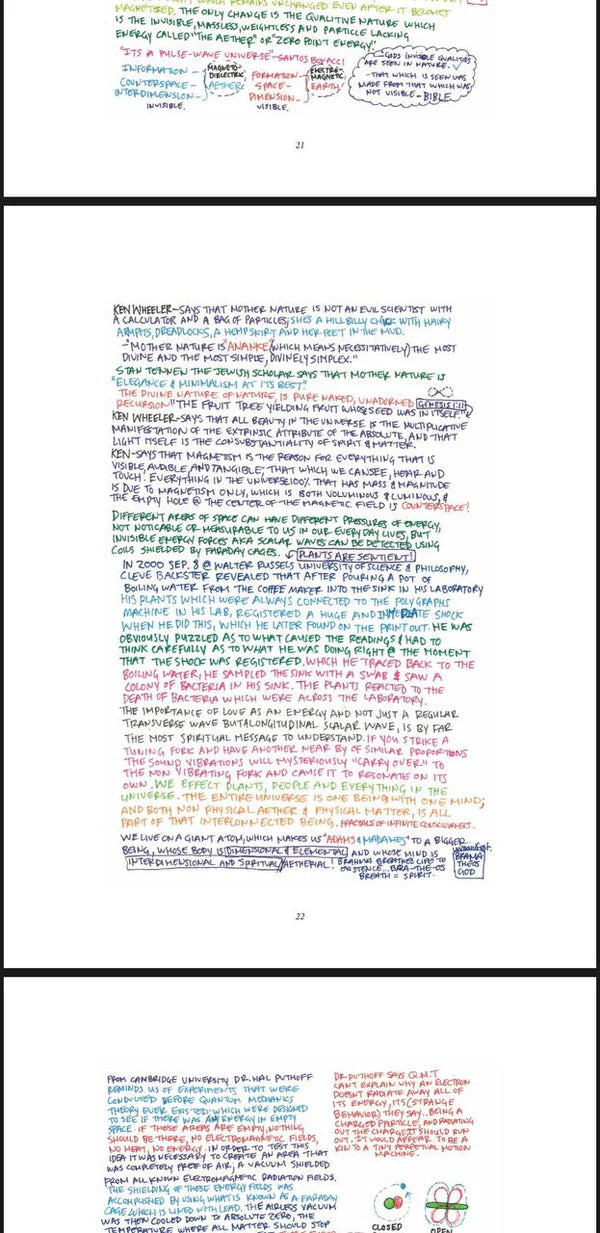 MAGNETISED. THE ONLY CHANGE IS THE QUALITIVE NATURE WHICH
IS THE INVISIBLE, MASSLESS, WEIGHTLESS AND PARTICLE LACKING
ENERGY CALLED "THE AETHER" OR "ZERO POINT ENERGY."
"ITS A PULSE-WAVE UNIVERSE"-SANTOS BONACCI
INFORMATION-
COUNTERSPACE-
INTERDIMENSION-
INVISIBLE.
MAGNETO-
DIELECTRIC
AETHER
FORMATION-
SPACE-
DIMENSION-
VISIBLE.
ELECTRO-
MAGNETIC
EARTH
GODS INVISIBLE QUALITIES
ARE SEEN IN NATURE.
-THAT WHICH IS SEEN WAS
MADE FROM THAT WHICH WAS
NOT VISIBLE-BIBLE
21
KEN WHEELER-SAYS THAT MOTHER NATURE IS NOT AN EVIL SCIENTIST WITH
A CALCULATOR AND A BAG OF PARTICLES; SHES A HILLBILLY CHICK WITH HAIRY
ARMPITS, DREADLOCKS, A HEMP SKIRT AND HER FEET IN THE MUD.
-"MOTHER NATURE IS "ANANKE" (WHICH MEANS NECESSITATIVELY) THE MOST
DIVINE AND THE MOST SIMPLE, DIVINELY SIMPLEX."
STAN TENNEN THE JEWISH SCHOLAR SAYS THAT MOTHER NATURE IS
"ELEGANCE & MINIMALISM AT ITS BEST."
THE DIVINE NATURE OF NATURE, IS PURE NAKED, UNADORNED GENESIS 1:11
RECURSION "THE FRUIT TREE YIELDING FRUIT WHOSE SEED WAS IN ITSELF"
KEN WHEELER-SAYS THAT ALL BEAUTY IN THE UNIVERSE IS THE MULTIPLICATIVE
MANIFESTATION OF THE EXTRINSIC ATTRIBUTE OF THE ABSOLUTE, AND THAT
LIGHT ITSELF IS THE CONSUBSTANTIALITY OF SPIRIT & MATTER.
KEN-SAYS THAT MAGNETISM IS THE REASON FOR EVERYTHING THAT IS
VISIBLE, AUDIBLE, AND TANGIBLE; THAT WHICH WE CAN SEE, HEAR AND
TOUCH. EVERYTHING IN THE UNIVERSE 100% THAT HAS MASS & MAGNITUDE
IS DUE TO MAGNETISM ONLY, WHICH IS BOTH VOLUMINOUS & LUMINOUS, &
THE EMPTY HOLE @ THE CENTER OF THE MAGNETIC FIELD IS COUNTERSPACE!
DIFFERENT AREAS OF SPACE CAN HAVE DIFFERENT PRESSURES OF ENERGY,
NOT NOTICABLE OR MEASURABLE TO US IN OUR EVERY DAY LIVES, BUT
INVISIBLE ENERGY FORCES AKA SCALAR WAVES CAN BE DETECTED USING
COILS SHIELDED BY FARADAY CAGES. PLANTS ARE SENTIENT!
IN 2000 SEP. 8 @ WALTER RUSSELS UNIVERSITY OF SCIENCE & PHILOSOPHY,
CLEVE BACKSTER REVEALED THAT AFTER POURING A POT OF
BOILING WATER FROM THE COFFEE MAKER INTO THE SINK IN HIS LABORATORY
HIS PLANTS WHICH WERE ALWAYS CONNECTED TO THE POLYGRAPHS
MACHINE IN HIS LAB, REGISTERED A HUGE AND SHOCK
WHEN HE DID THIS, WHICH HE LATER FOUND ON THE PRINT OUT. HE WAS
OBVIOUSLY PUZZLED AS TO WHAT CAUSED THE READINGS & HAD TO
THINK CAREFULLY AS TO WHAT HE WAS DOING RIGHT @ THE MOMENT
THAT THE SHOCK WAS REGISTERED. WHICH HE TRACED BACK TO THE
BOILING WATER; HE SAMPLED THE SINK WITH A SWAB & SAW A
COLONY OF BACTERIA IN HIS SINK. THE PLANTS REACTED TO THE
DEATH OF BACTERIA WHICH WERE ACROSS THE LABORATORY.
THE IMPORTANCE OF LOVE AS AN ENERGY AND NOT JUST A REGULAR
TRANSVERSE WAVE BUT A LONGITUDINAL SCALAR WAVE, IS BY FAR
THE MOST SPIRITUAL MESSAGE TO UNDERSTAND. IF YOU STRIKE A
TUNING FORK AND HAVE ANOTHER NEAR BY OF SIMILAR PROPORTIONS
THE SOUND VIBRATIONS WILL MYSTERIOUSLY "CARRY OVER" TO
THE NON VIBRATING FORK AND CAUSE IT TO RESONATE ON ITS
OWN. WE EFFECT PLANTS, PEOPLE AND EVERYTHING IN THE
UNIVERSE. THE ENTIRE UNIVERSE IS ONE BEING WITH ONE MIND;
AND BOTH NON PHYSICAL AETHER & PHYSICAL MATTER, IS ALL
PART OF THAT INTERCONNECTED BEING. FRACTALS OF INFINITE CONSCIOUSNESS.
WE LIVE ON A GIANT ATOM, WHICH MAKES US "ADAMS & MADAMES" TO A BIGGER
BEING, WHOSE BODY IS DIMENSIONAL & ELEMENTAL AND WHOSE MIND IS
INTERDIMENSIONAL AND SPIRITUAL/AETHERIAL! BRAHMA BREATHES LIFE TO
EXISTENCE... BRA-THE-OS
BREATH = SPIRIT.
BRAMA
THEOS
GOD
22
FROM CAMBRIDGE UNIVERSITY DR. HAL PUTHOFF
REMINDS US OF EXPERIMENTS THAT WERE
CONDUTED BEFORE QUANTUM MECHANICS
THEORY EVER EXISTED: WHICH WERE DESIGNED
TO SEE IF THERE WAS ANY ENERGY IN EMPTY
SPACE. IF THESE AREAS ARE EMPTY, NOTHING
SHOULD BE THERE, NO ELECTROMAGNETIC FIELDS,
NO HEAT, NO ENERGY. IN ORDER TO TEST THIS
IDEA IT WAS NECESSARY TO CREATE AN AREA THAT
WAS COMPLETELY FREE OF AIR; A VACUUM SHIELDED
FROM ALL KNOWN ELECTROMAGNETIC RADIATION FIELDS.
THE SHIELDING OF THESE ENERGY FIELDS WAS
ACCOMPLISHED BY USING WHAT IS KNOWN AS A FARADAY
CAGE WHICH IS LINED WITH LEAD. THE AIRLESS VACUUM
WAS THEN COOLED DOWN TO ABSOLUTE ZERO, THE
TEMPERATURE WHERE ALL MATTER SHOULD STOP
DR PUTHOFF SAYS Q.M.T
CANT EXPLAIN WHY AN ELECTRON
DOESNT RADIATE AWAY ALL OF
ITS ENERGY, ITS (STRANGE
BEHAVIOR) THEY SAY.. BEING A
CHARGED PARTICLE, AND RADIATING
OUT THE CHARGE IT SHOULD RUN
OUT. IT WOULD APPEAR TO BE A
KIN TO A TINY PERPETUAL MOTION
MACHINE.
CLOSED
OPEN